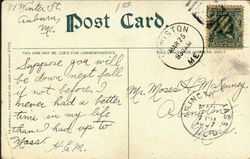 41 Winter St.
Auburn,
Me.
Post Card.
THIS SIDE MAY BE USED FOR CORRESPONDENCE
Suppose you will
be down next fall
if not before. I
never had a better
time in my life
than I had up to
Mass. H.E.M.
MAR 29
ME.
Mr. Moses H. McKenney,
Abington,
Mass.